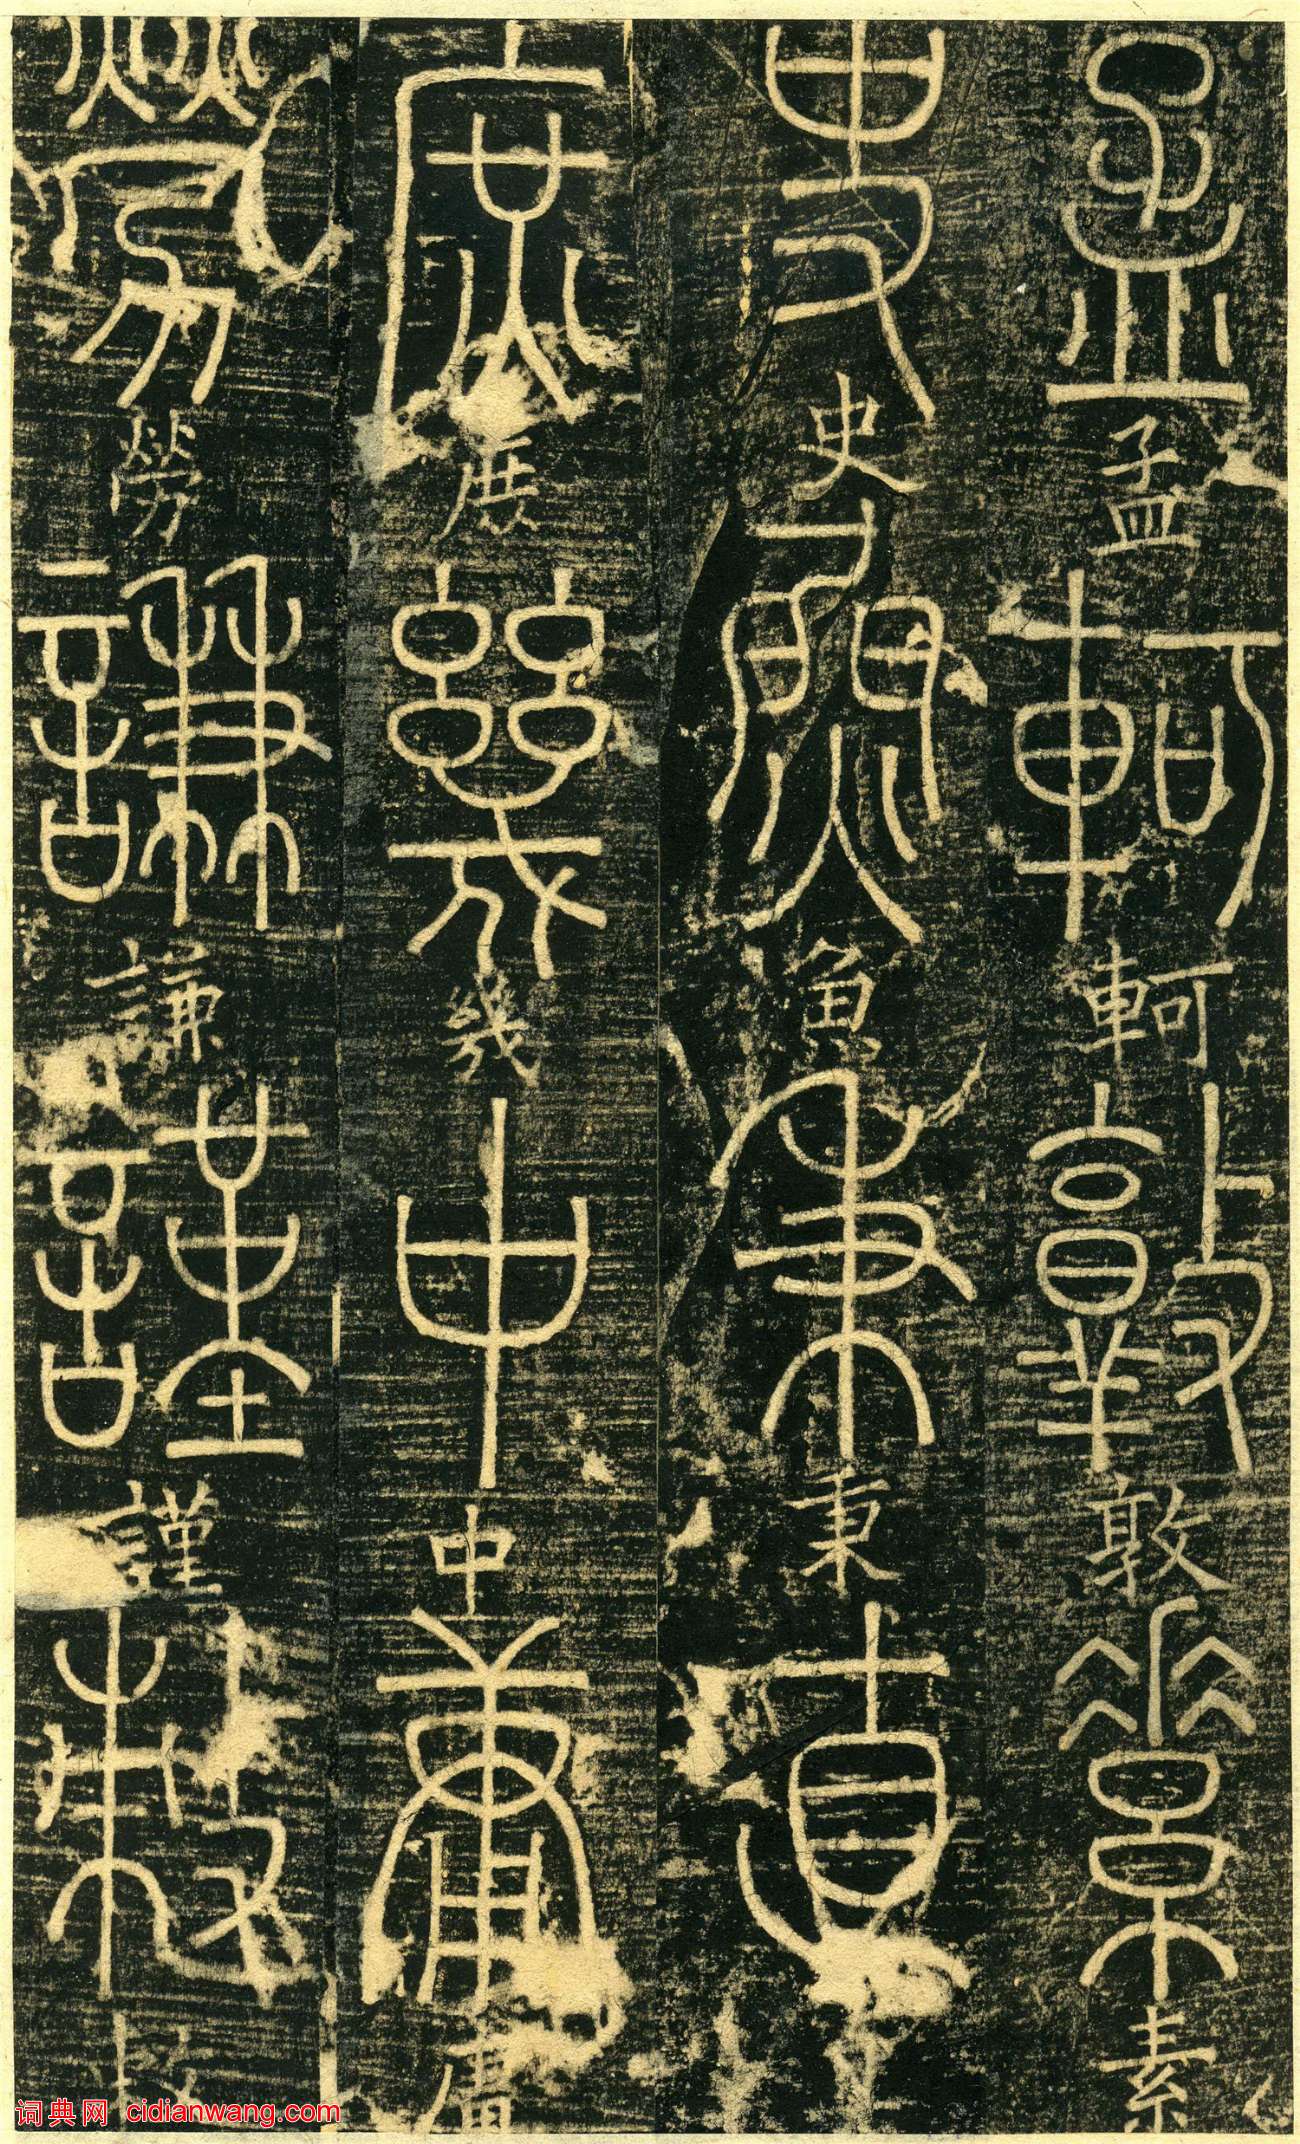 孟孟軻軻敦敦素素
史史魚魚秉秉直
庶庶幾幾中中庸庸
勞勞謙謙謹謹敕
词典网 cidianwang.com